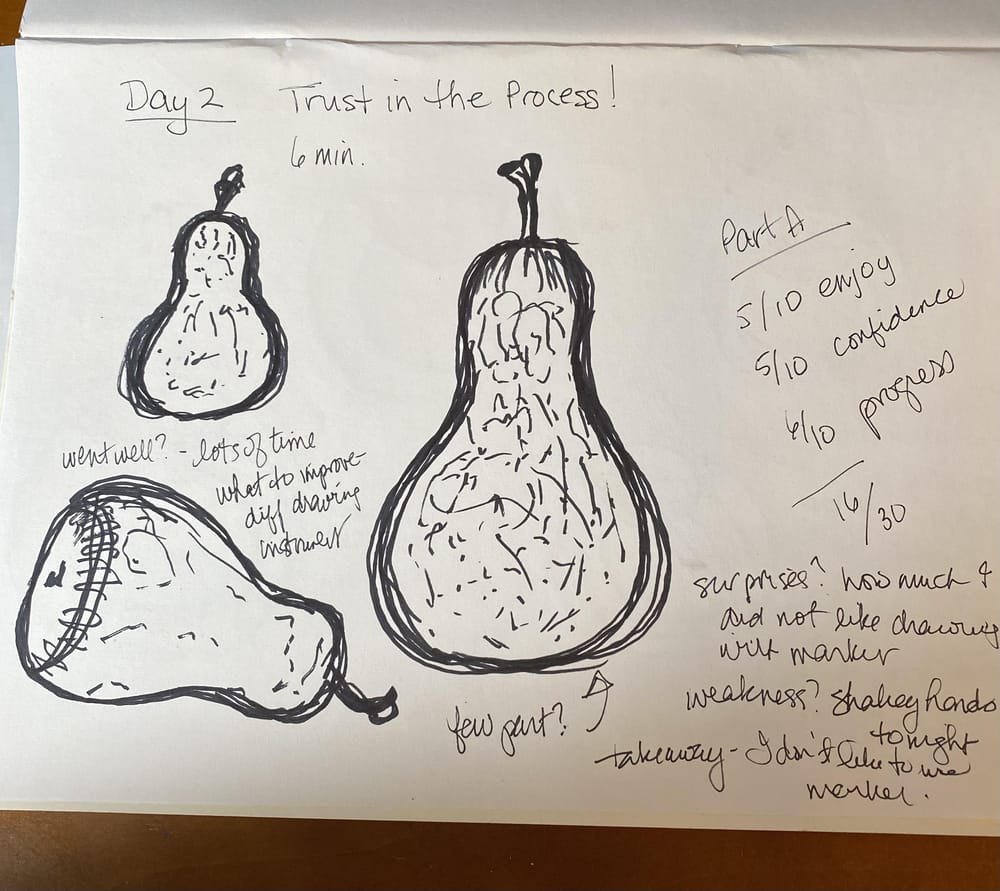 Day 2 Trust in the Process!
6 min.
Part A
5/10 enjoy
5/10 confidence
6/10 progress
16/30
went well? - lots of time
what to improve-
diff drawing
instrument
surprises? how much I
did not like drawing
with marker
weakness? Shakey hands
tonight
takeaway - I don't like to use
marker.
part?